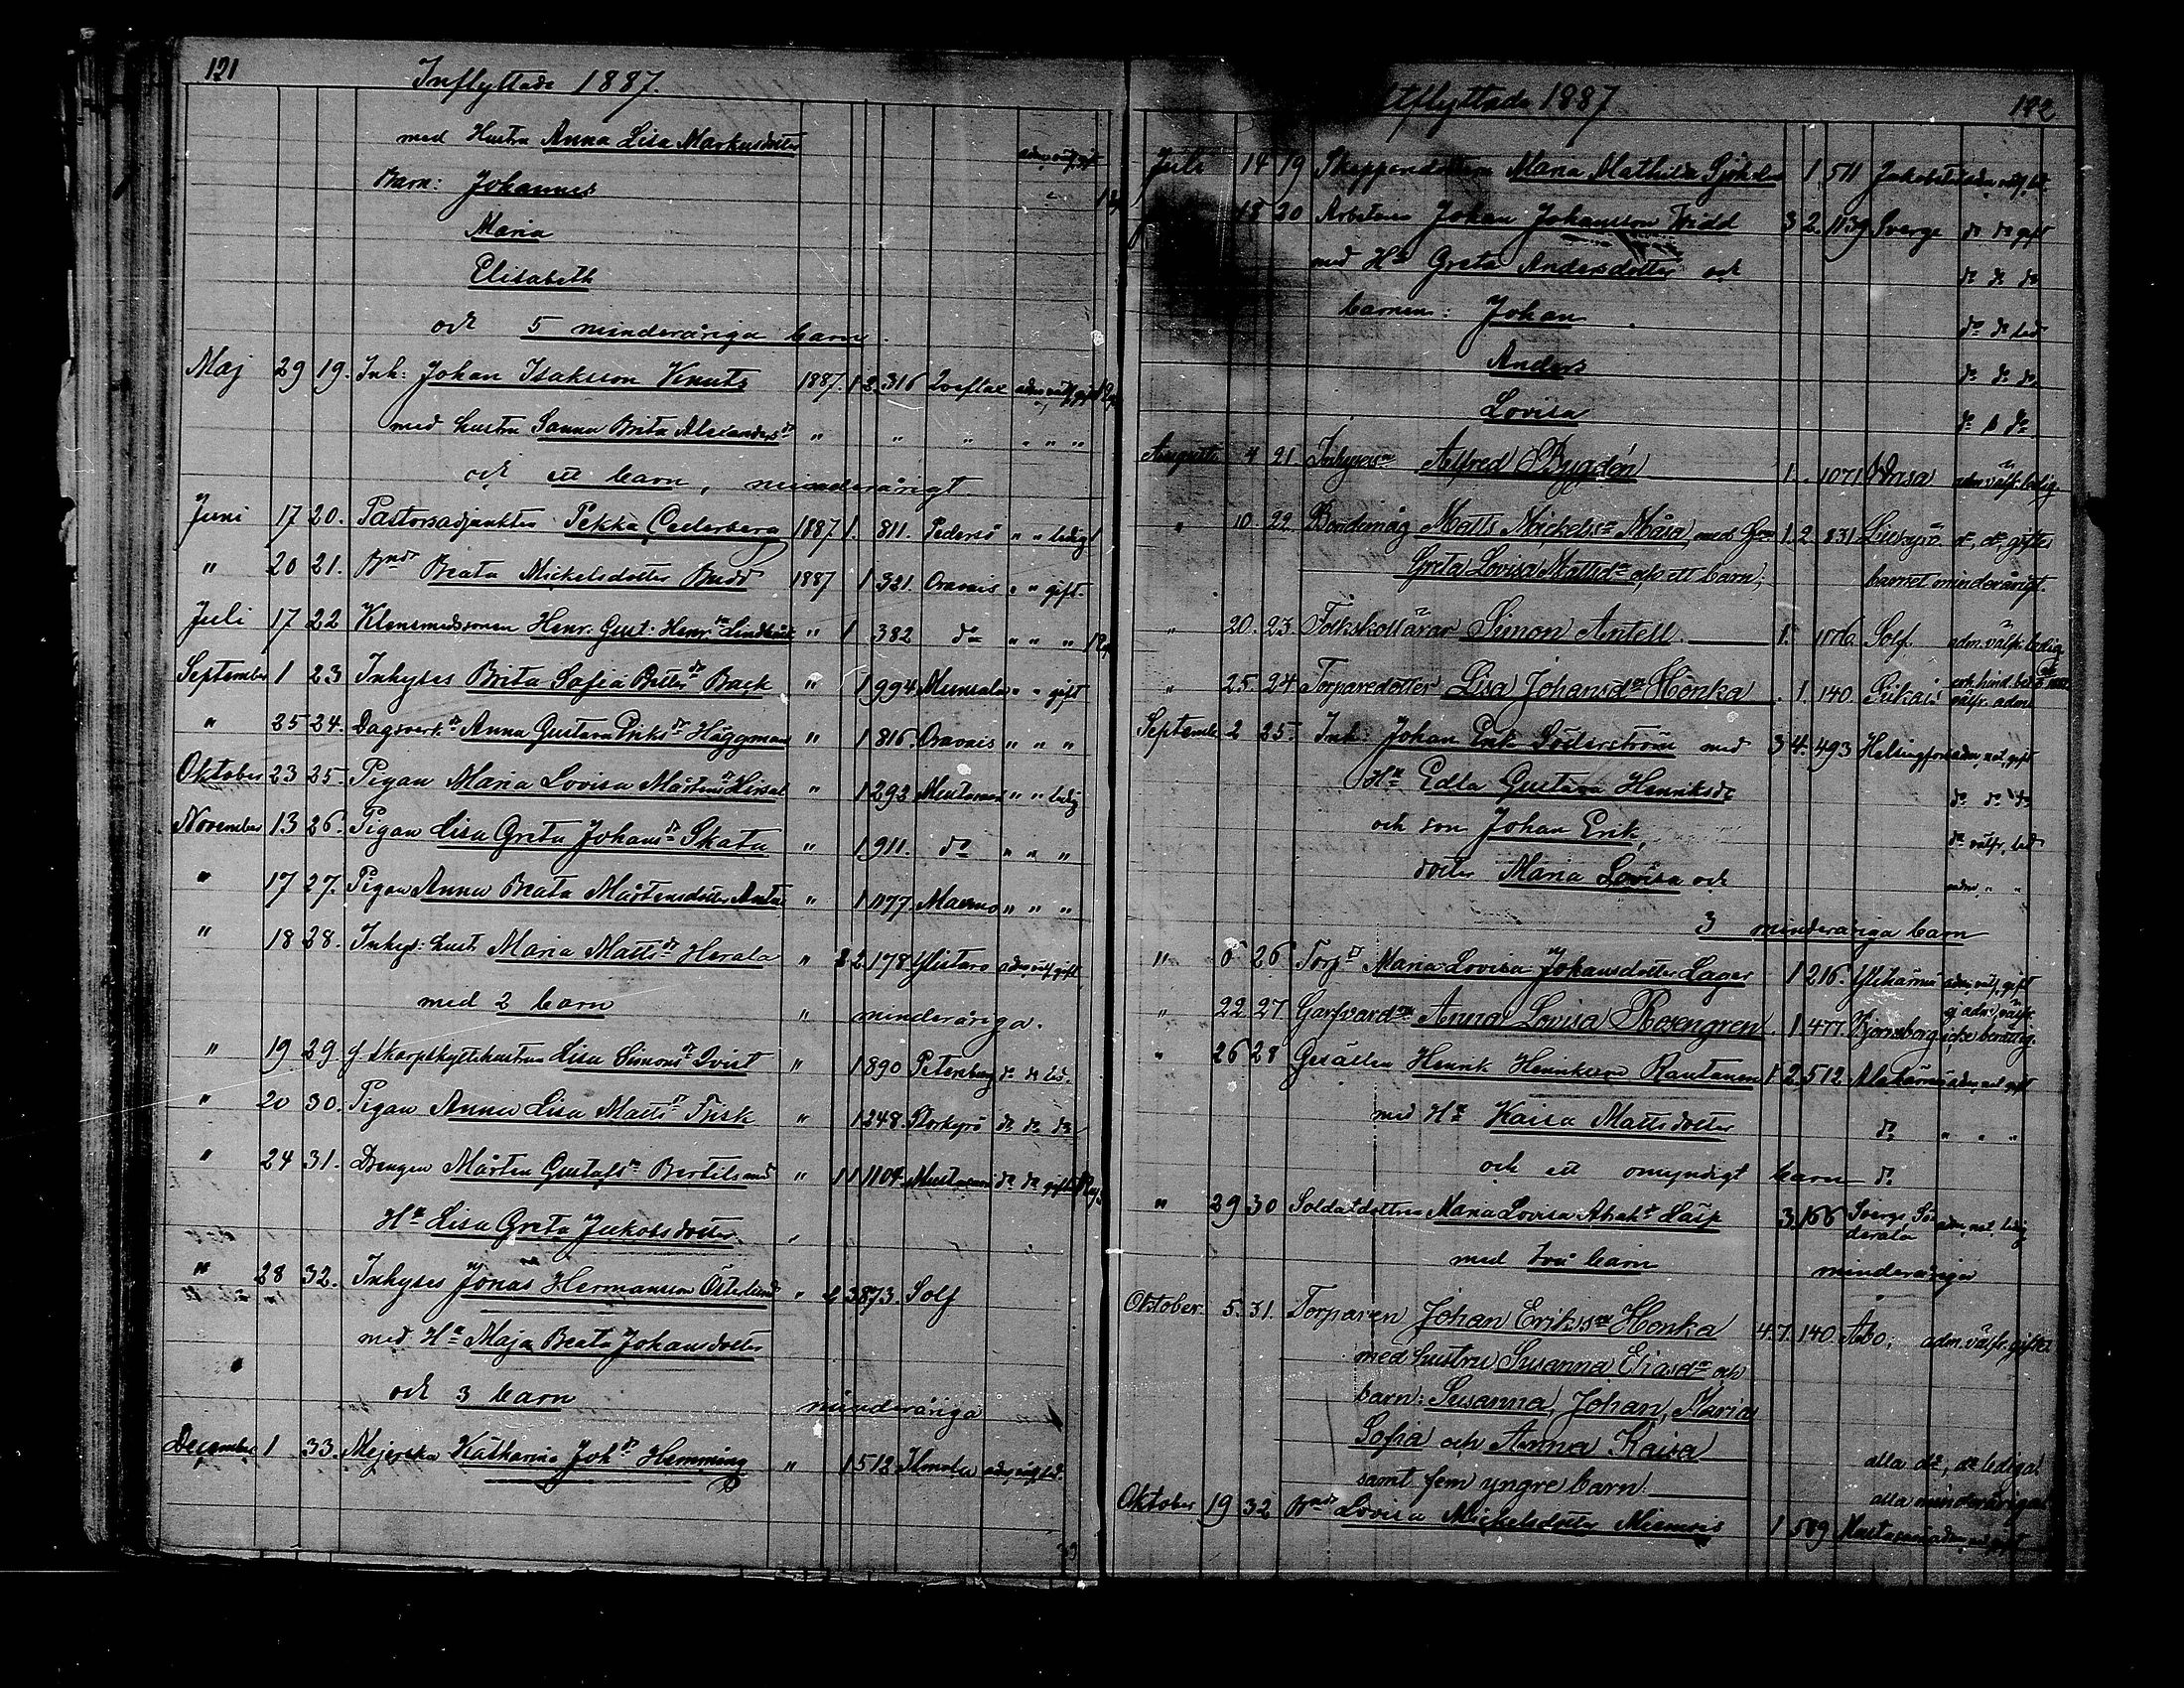 121
Inflyttade 1887.
med Hustru Anna Lisa Markusdotter
Barn: Johannes
Maria
Elisabeth
och 5 minderåriga barn.
Maj 29 19. Inh: Johan Isaksson Knuts 1887. 1 2. 316
med hustru Sanna Brita Alexanders dr " " "
och ett barn, minderårigt.
Juni 17 20. Pastorsadjunkten Pekka Cederberg 1887 1. 811. Pedersö " " ledig
" 20 21. Beata Mickelsdotter Budd 1887 1 321. Oravais " " gift.
Juli 17 22 Klensmedssonen Henr. Gust: Henr. " 1 382 do " " "
September 1 23 Inhyses Brita Sofia Back " 1 994 Munsala " " gift
" 25 24. Anna Gustava Eriks dr Häggman " 1 816. Oravais " " "
Oktober 23 25. Pigan Maria Lovisa Mårtens dr " 1 292 " " ledig
November 13 26. Pigan Lisa Greta Johans dr Skata " 1 911. do " " "
" 17 27. Pigan Anna Beata Mårtensdotter " 1 1177. Maxmo " " "
" 18 28. Inhys: hust. Maria Matts dr Herala " 2 178 Ylistaro adm, välf, gift
med 2 barn " minderåriga.
" 19 29 f Skarpskyttehustrun Lisa Simons dr Qvist " 1 890 Petersburg do do led.
" 20 30. Pigan Anna Lisa Matts dr Frisk " 1 248. Storkyrö do do do
" 24 31. Drengen Mårten Gustafs n Bertils med " 1 1 1104. do do gifte
Ha Lisa Greta Jakobsdotter "
" 28 32. Inhyses Jonas Hermansson Österlund " 3 873. Solf
med Ha Maja Beata Johansdotter
och 3 barn minderåriga
December 1 33. Mejerska Katharina Joh dr Hemming " 1 512 Ilmola
33
Utflyttade 1887
122
Juli 14 19 Maria Mathilda 1 511
18 20 Arbetaren Johan Johansson Widd 3 2. 1139. Sverge do do gift
med Ha Greta Andersdotter och do do do
barnen: Johan do do led
Anders do do do
Lovisa do do
Augusti 4 21. Alfred Bygdén 1. 1071 adm. välfr. ledig
" 10. 22. Bondemåg Matts Mickelss n Måsa, med 1. 2. 831. do, do, gifta
Greta Lovisa Mattsdr och ett barn; barnet minderårigt.
" 20. 23. Folkskollärar Simon Antell 1. 1076 Solf. adm. välfr. ledig
" 25. 24. Torparedotter Lisa Johansdr Honka 1. 140.
September 2 25. Inh. Johan Erik Söderström med 3 4. 493 Helsingfors adm, nat, gift
Ha Edla Gustava Henriksdr do do do
och son Johan Erik, do välfr, led
dotter Maria Lovisa och adm " "
3 minderåriga barn
" 6 26 Torp dr Maria Lovisa Johansdotter Lager 1 216. adm, välf, gift
" 22 27. Garfvard n Anna Lovisa Rosengren 1 477. Björneborg
" 26 28 Gesällen Henrik Henriksson Rautanen 1 2 512. Alakärmä adm, nat, gift
med Ha Kaisa Mattsdotter do " " "
och ett omyndigt barn do
" 29 30 Soldatdottren Maria Lovisa 3. 166 Sverge, Söderala
med två barn minderåriga
Oktober. 5. 31. Torparen Johan Erikss n Honka 4. 7. 140. Åbo; adm. välfr. gifta
med hustru Susanna Eliasdr och
barn: Susanna, Johan, Maria
Sofia och Anna Kaisa alla do, do lediga
samt fem yngre barn. alla minderåriga
Oktober 19 32 Lovisa Mickelsdotter 1 509